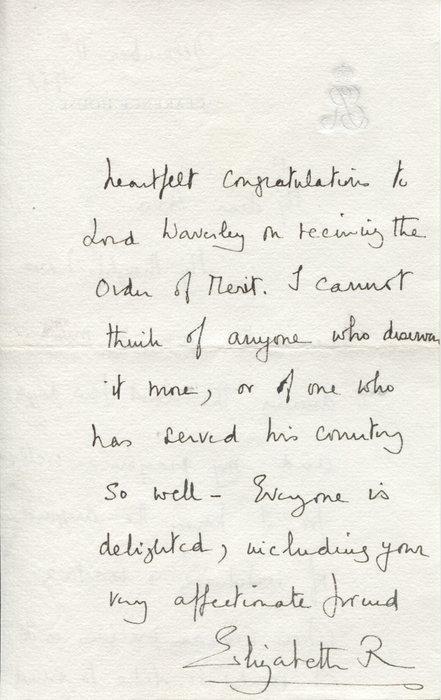 heartfelt congratulations to
Lord Waverley on receiving the
Order of Merit. I cannot
think of anyone who deserves
it more, or of one who
has served his country
so well – Everyone is
delighted, including your
very affectionate friend
Elizabeth R